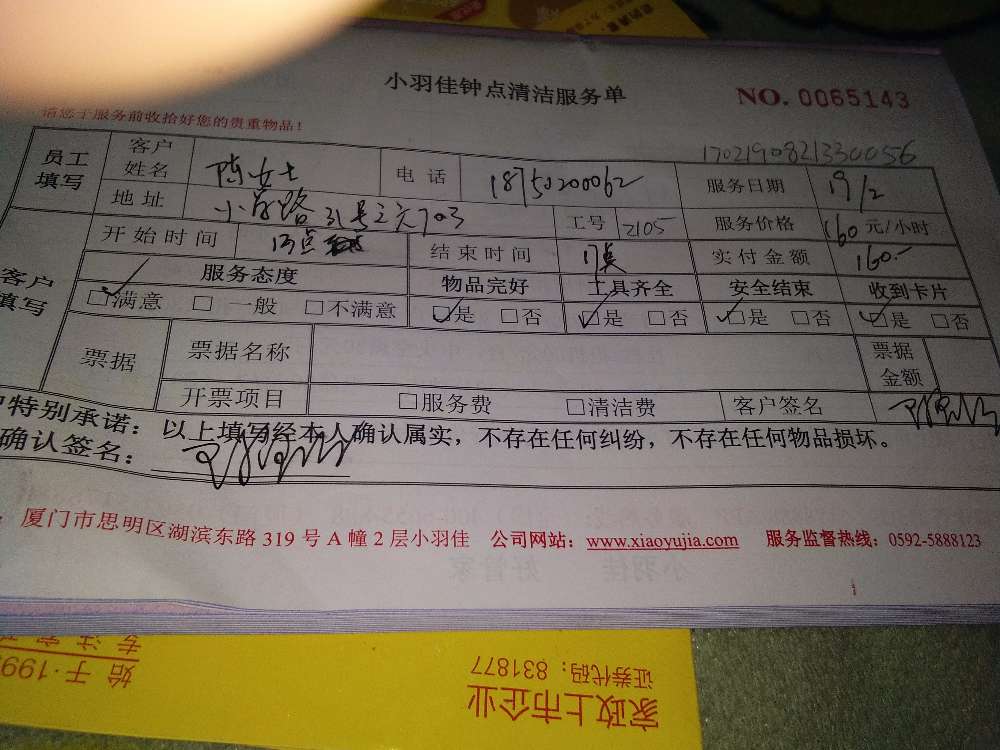 小羽佳钟点清洁服务单 NO. 0065143
请您于服务前收拾好您的贵重物品！
17021908213300056
员工填写 客户姓名 陈女士 电话 18750200062 服务日期 19/2
地址 31号 703 工号 2105 服务价格 160 元/小时
客户填写 开始时间 13点 结束时间 17点 实付金额 160.-
服务态度 物品完好 工具齐全 安全结束 收到卡片
☑满意 □一般 □不满意 ☑是 □否 ☑是 □否 ☑是 □否 ☑是 □否
票据 票据名称 票据金额
开票项目 □服务费 □清洁费 客户签名
户特别承诺：以上填写经本人确认属实，不存在任何纠纷，不存在任何物品损坏。
确认签名：
厦门市思明区湖滨东路 319 号 A 幢 2 层小羽佳 公司网站：www.xiaoyujia.com 服务监督热线：0592-5888123
家政上市企业
证券代码：831877
始于·199
专注家